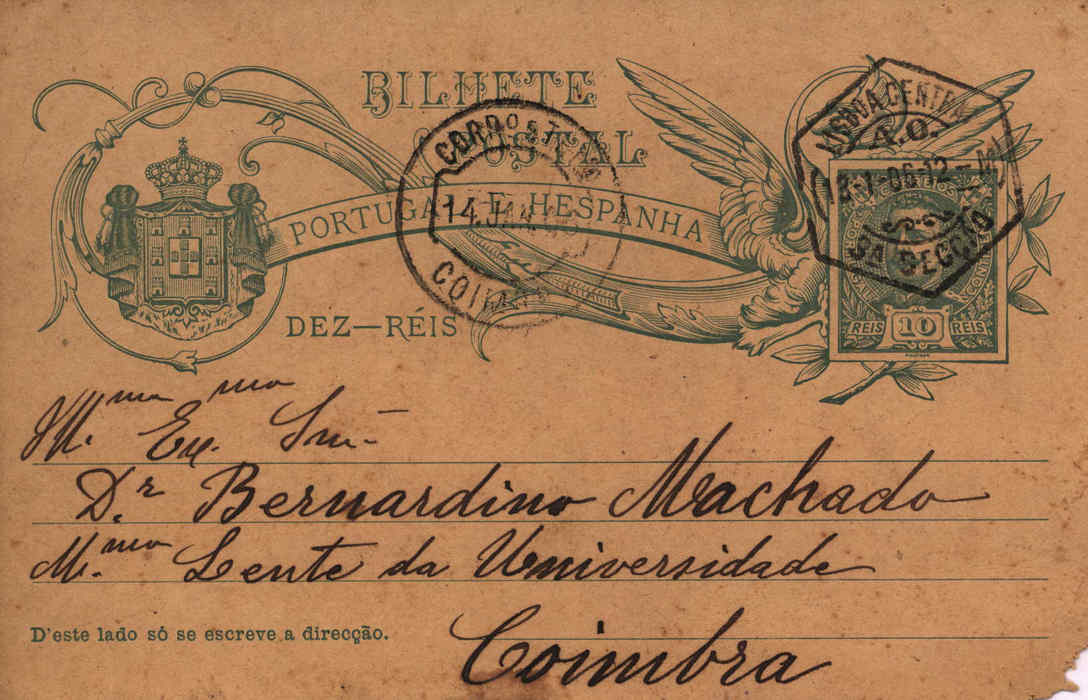 BILHETE
POSTAL
PORTUGAL E HESPANHA
DEZ—RÉIS
LISBOA CENTRAL
A.O.
13-1-06-12-M
SECÇÃO
14 JAN
REIS 10 REIS
M.ma Ex.mo Snr.
D.r Bernardino Machado
M.mo Lente da Universidade
Coimbra
D'este lado só se escreve a direcção.